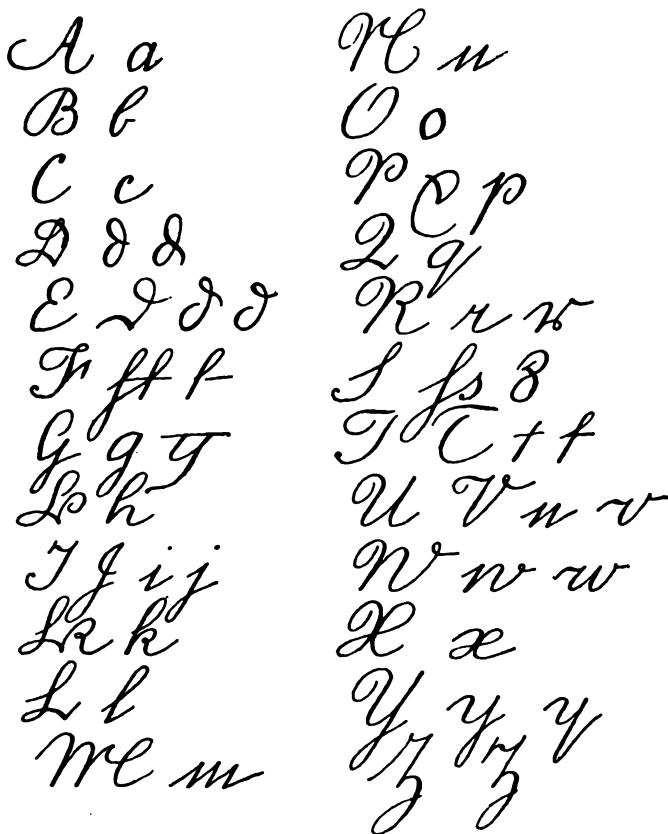 A a
B b
C c
D d d
E e e e
F f f f
G g g
H h
I J i j
K k
L l
M m
N n
O o
P P p
Q q
R r r
S ſ s s
T T t t
U V u v
W w w
X x
Y y y
Z z